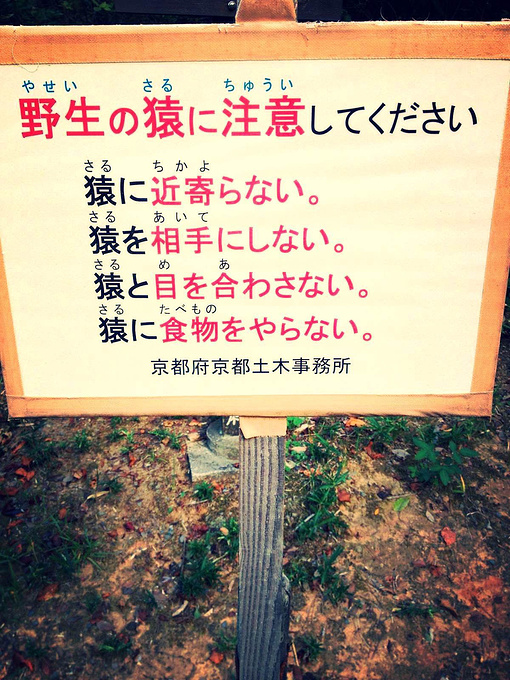 やせい さる ちゅうい
野生の猿に注意してください
さる ちかよ
猿に近寄らない。
さる あいて
猿を相手にしない。
さる め あ
猿と目を合わさない。
さる たべもの
猿に食物をやらない。
京都府京都土木事務所